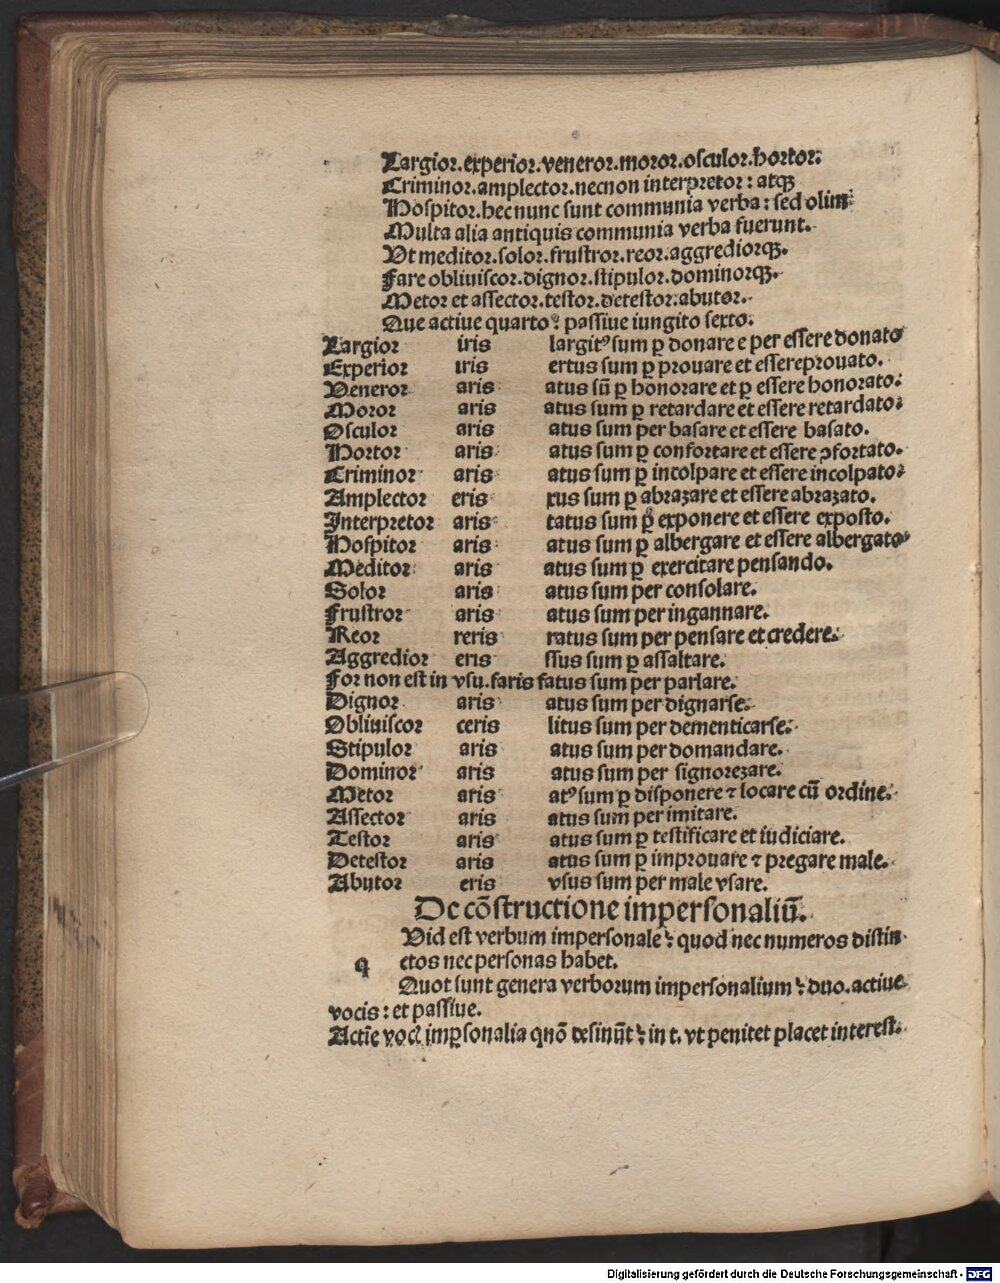 Largior.experior.veneror.moror.osculor.hortor:
Criminor.amplector.necnon interpretor: atqꝫ
Hospitor.hec nunc sunt communia verba: sed olim:
Multa alia antiquis communia verba fuerunt.
Vt meditor.solor.frustror.reor.aggrediorqꝫ.
Fare obliuiscor.dignor.stipulor.dominorqꝫ.
Metor et assector.testor.detestor.abutor.
Que actiue quarto: passiue iungito sexto.
Largior iris largitꝰ sum ꝑ donare e per essere donato
Experior iris ertus sum ꝑ prouare et essereprouato.
Veneror aris atus sū ꝑ honorare et ꝑ essere honorato:
Moror aris atus sum ꝑ retardare et essere retardato:
Osculor aris atus sum per basare et essere basato.
Hortor aris atus sum ꝑ confortare et essere ꝯfortato.
Criminor aris atus sum ꝑ incolpare et essere incolpato:
Amplector eris xus sum ꝑ abrazare et essere abrazato.
Interpretor aris tatus sum ꝑ exponere et essere exposto.
Hospitor aris atus sum ꝑ albergare et essere albergato
Meditor aris atus sum ꝑ exercitare pensando.
Solor aris atus sum per consolare.
Frustror aris atus sum per ingannare.
Reor reris ratus sum per pensare et credere.
Aggredior eris ssus sum ꝑ assaltare.
For non est in vsu.faris fatus sum per parlare.
Dignor aris atus sum per dignarse.
Obliuiscor ceris litus sum per dementicarse.
Stipulor aris atus sum per domandare.
Dominor aris atus sum per signorezare.
Metor aris atꝰ sum ꝑ disponere ⁊ locare cū ordine.
Assector aris atus sum per imitare.
Testor aris atus sum ꝑ testificare et iudiciare.
Detestor aris atus sum ꝑ improuare ⁊ pregare male.
Abutor eris vsus sum per male vsare.
De cōstructione impersonaliū.
q Vid est verbum impersonale: quod nec numeros distin
ctos nec personas habet.
Quot sunt genera verborum impersonalium: duo.actiue
vocis: et passiue.
Actīe vocꝭ imꝑsonalia quō desinūt: in t. vt penitet placet interest.
Digitalisierung gefördert durch die Deutsche Forschungsgemeinschaft - DFG